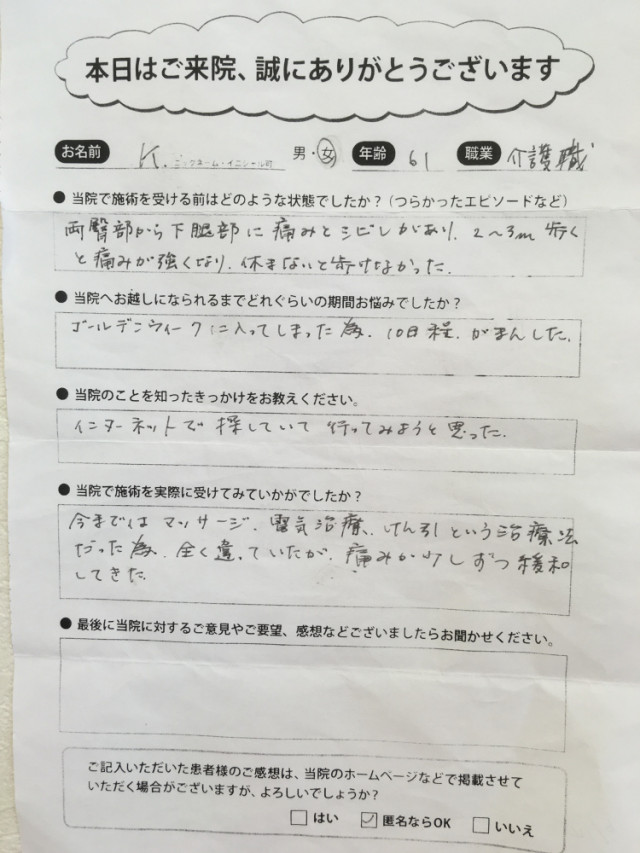 本日はご来院、誠にありがとうございます
お名前 K. ニックネーム・イニシャル可 男・女 年齢 61 職業 介護職
● 当院で施術を受ける前はどのような状態でしたか？（つらかったエピソードなど）
両臀部から下腿部に痛みとシビレがあり、2〜3m歩く
と痛みが強くなり、休まないと歩けなかった。
● 当院へお越しになられるまでどれぐらいの期間お悩みでしたか？
ゴールデンウィークに入ってしまった為、10日程、がまんした。
● 当院のことを知ったきっかけをお教えください。
インターネットで探していて行ってみようと思った。
● 当院で施術を実際に受けてみていかがでしたか？
今まではマッサージ、電気治療、けん引という治療法
だった為、全く違っていたが、痛みが少しずつ緩和
してきた
● 最後に当院に対するご意見やご要望、感想などございましたらお聞かせください。
ご記入いただいた患者様のご感想は、当院のホームページなどで掲載させて
いただく場合がございますが、よろしいでしょうか？
□ はい ☑ 匿名ならOK □ いいえ